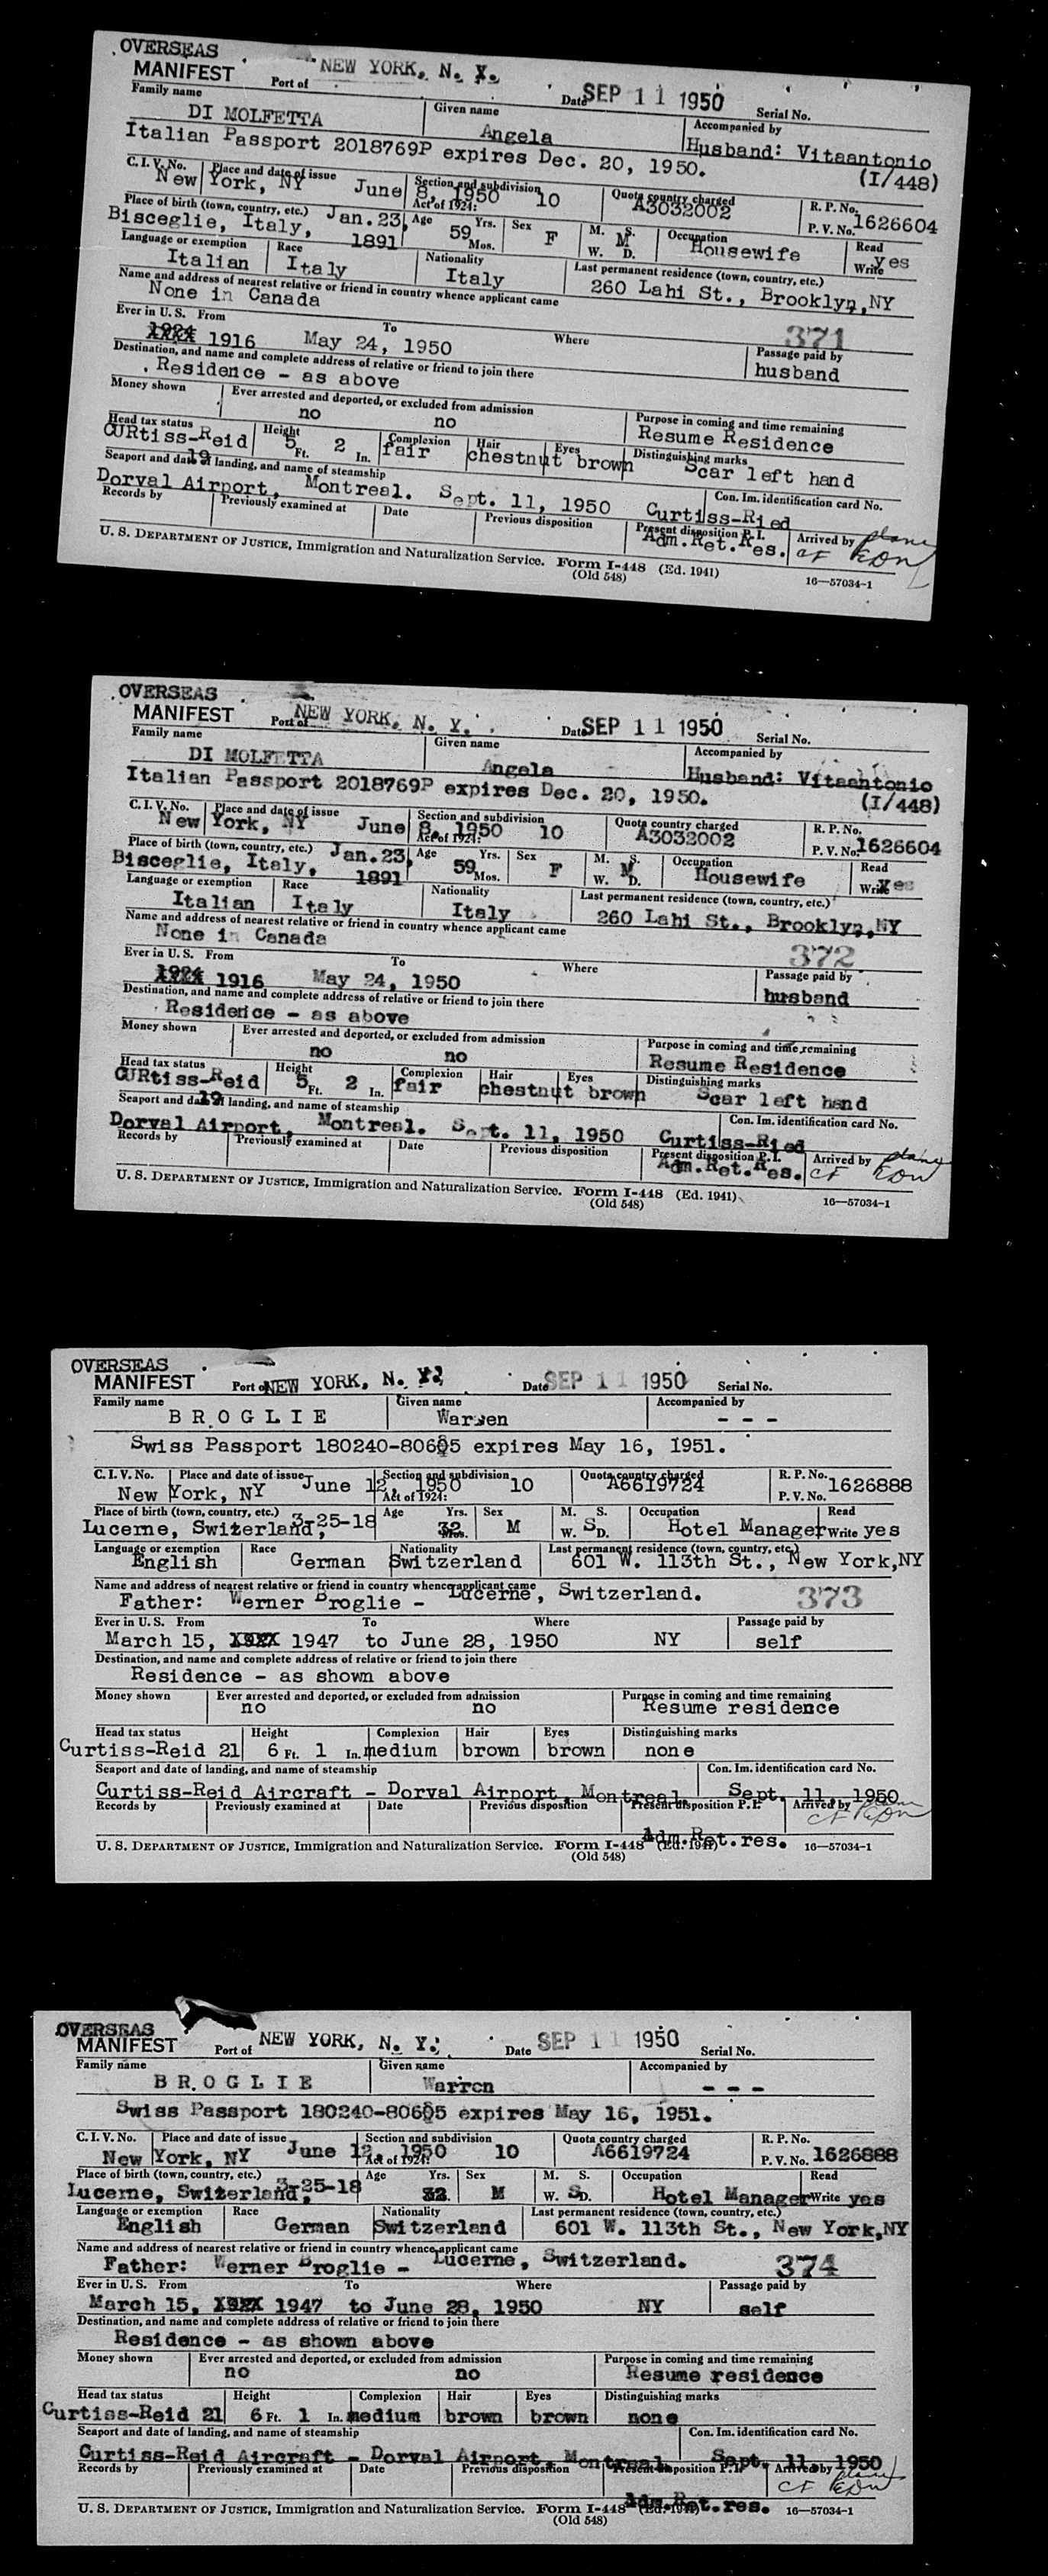 OVERSEAS
MANIFEST Port of NEW YORK, N. Y. Date SEP 11 1950 Serial No.
Family name Given name Accompanied by
DI MOLFETTA Angela Husband: Vitaantonio
Italian Passport 2018769P expires Dec. 20, 1950. (I/448)
C. I. V. No. Place and date of issue Section and subdivision Quota country charged R. P. No.
New York, NY June 8, 1950 Act of 1924: 10 A3032002 P. V. No. 1626604
Place of birth (town, country, etc.) Jan. 23, Age Yrs. Sex M. S. Occupation Read
Bisceglie, Italy, 1891 59 Mos. F W. M D. Housewife Write yes
Language or exemption Race Nationality Last permanent residence (town, country, etc.)
Italian Italy Italy 260 Lahi St., Brooklyn,NY
Name and address of nearest relative or friend in country whence applicant came
None in Canada 371
Ever in U. S. From To Where Passage paid by
1924 1916 May 24, 1950 husband
Destination, and name and complete address of relative or friend to join there
Residence - as above
Money shown Ever arrested and deported, or excluded from admission Purpose in coming and time remaining
no no Resume Residence
Head tax status Height Complexion Hair Eyes Distinguishing marks
CURtiss-Reid 19 5 Ft. 2 In. fair chestnut brown Scar left hand
Seaport and date of landing, and name of steamship Con. Im. identification card No.
Dorval Airport, Montreal. Sept. 11, 1950 Curtiss-Ried
Records by Previously examined at Date Previous disposition Present disposition P. I. Arrived by plane
Adm.Ret.Res. CF EDW
U. S. DEPARTMENT OF JUSTICE, Immigration and Naturalization Service. Form I-448 (Ed. 1941) 16—57034-1
(Old 548)
OVERSEAS
MANIFEST Port of NEW YORK, N. Y. Date SEP 11 1950 Serial No.
Family name Given name Accompanied by
DI MOLFETTA Angela Husband: Vitaantonio
Italian Passport 2018769P expires Dec. 20, 1950. (I/448)
C. I. V. No. Place and date of issue Section and subdivision Quota country charged R. P. No.
New York, NY June 8, 1950 Act of 1924: 10 A3032002 P. V. No. 1626604
Place of birth (town, country, etc.) Jan. 23, Age Yrs. Sex M. S. Occupation Read
Bisceglie, Italy, 1891 59 Mos. F W. M D. Housewife Write yes
Language or exemption Race Nationality Last permanent residence (town, country, etc.)
Italian Italy Italy 260 Lahi St., Brooklyn,NY
Name and address of nearest relative or friend in country whence applicant came
None in Canada 372
Ever in U. S. From To Where Passage paid by
1924 1916 May 24, 1950 husband
Destination, and name and complete address of relative or friend to join there
Residence - as above
Money shown Ever arrested and deported, or excluded from admission Purpose in coming and time remaining
no no Resume Residence
Head tax status Height Complexion Hair Eyes Distinguishing marks
CURtiss-Reid 19 5 Ft. 2 In. fair chestnut brown Scar left hand
Seaport and date of landing, and name of steamship Con. Im. identification card No.
Dorval Airport, Montreal. Sept. 11, 1950 Curtiss-Ried
Records by Previously examined at Date Previous disposition Present disposition P. I. Arrived by plane
Adm.Ret.Res. CF EDW
U. S. DEPARTMENT OF JUSTICE, Immigration and Naturalization Service. Form I-448 (Ed. 1941) 16—57034-1
(Old 548)
OVERSEAS
MANIFEST Port of NEW YORK, N. Y. Date SEP 11 1950 Serial No.
Family name Given name Accompanied by
BROGLIE Warren - - -
Swiss Passport 180240-80605 expires May 16, 1951.
C. I. V. No. Place and date of issue Section and subdivision Quota country charged R. P. No.
New York, NY June 12, 1950 Act of 1924: 10 A6619724 P. V. No. 1626888
Place of birth (town, country, etc.) Age Yrs. Sex M. S. Occupation Read
Lucerne, Switzerland, 3-25-18 32 Mos. M W. S D. Hotel Manager Write yes
Language or exemption Race Nationality Last permanent residence (town, country, etc.)
English German Switzerland 601 W. 113th St., New York,NY
Name and address of nearest relative or friend in country whence applicant came
Father: Werner Broglie - Lucerne, Switzerland. 373
Ever in U. S. From To Where Passage paid by
March 15, 1947 to June 28, 1950 NY self
Destination, and name and complete address of relative or friend to join there
Residence - as shown above
Money shown Ever arrested and deported, or excluded from admission Purpose in coming and time remaining
no no Resume residence
Head tax status Height Complexion Hair Eyes Distinguishing marks
Curtiss-Reid 21 6 Ft. 1 In. medium brown brown none
Seaport and date of landing, and name of steamship Con. Im. identification card No.
Curtiss-Reid Aircraft - Dorval Airport, Montreal Sept. 11, 1950
Records by Previously examined at Date Previous disposition Present disposition P. I. Arrived by plane
CF EDW
Adm.Ret.res.
U. S. DEPARTMENT OF JUSTICE, Immigration and Naturalization Service. Form I-448 (Ed. 1941) 16—57034-1
(Old 548)
OVERSEAS
MANIFEST Port of NEW YORK, N. Y. Date SEP 11 1950 Serial No.
Family name Given name Accompanied by
BROGLIE Warren - - -
Swiss Passport 180240-80605 expires May 16, 1951.
C. I. V. No. Place and date of issue Section and subdivision Quota country charged R. P. No.
New York, NY June 12, 1950 Act of 1924: 10 A6619724 P. V. No. 1626888
Place of birth (town, country, etc.) Age Yrs. Sex M. S. Occupation Read
Lucerne, Switzerland, 3-25-18 32 M W. S D. Hotel Manager Write yes
Language or exemption Race Nationality Last permanent residence (town, country, etc.)
English German Switzerland 601 W. 113th St., New York,NY
Name and address of nearest relative or friend in country whence applicant came
Father: Werner Broglie - Lucerne, Switzerland. 374
Ever in U. S. From To Where Passage paid by
March 15, 1947 to June 28, 1950 NY self
Destination, and name and complete address of relative or friend to join there
Residence - as shown above
Money shown Ever arrested and deported, or excluded from admission Purpose in coming and time remaining
no no Resume residence
Head tax status Height Complexion Hair Eyes Distinguishing marks
Curtiss-Reid 21 6 Ft. 1 In. medium brown brown none
Seaport and date of landing, and name of steamship Con. Im. identification card No.
Curtiss-Reid Aircraft - Dorval Airport, Montreal Sept. 11, 1950
Records by Previously examined at Date Previous disposition Present disposition P. I. Arrived by plane
CF EDW
Adm.Ret.res.
U. S. DEPARTMENT OF JUSTICE, Immigration and Naturalization Service. Form I-448 (Ed. 1941) 16—57034-1
(Old 548)